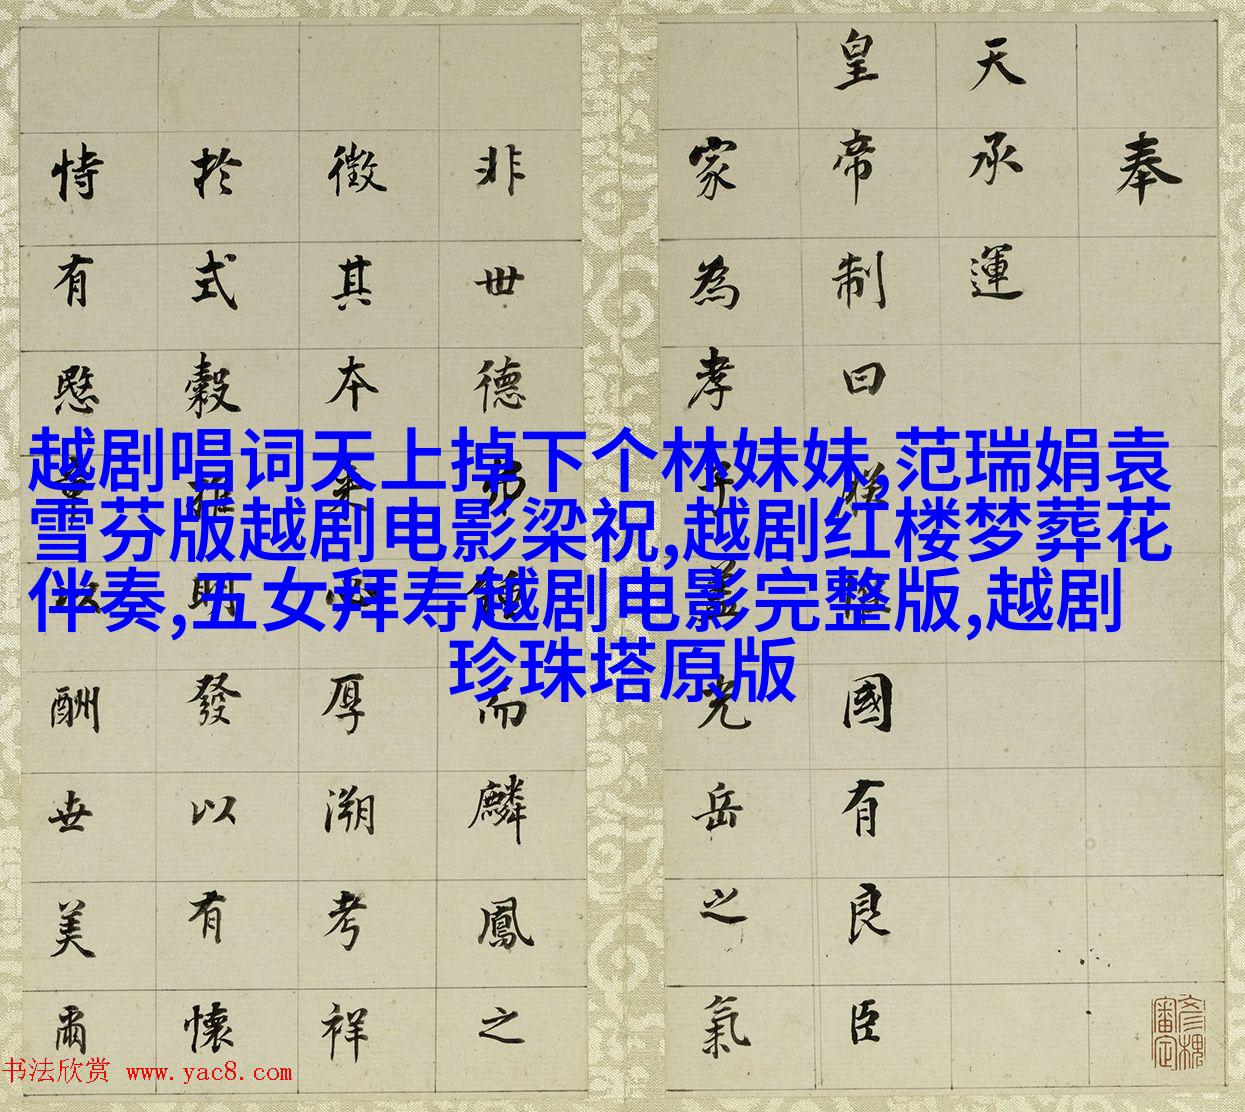 奉
天承運
皇帝制曰國有良臣
家為孝子光岳之氣
非世德弗鍾而麟鳳之
徵其本来必厚溯考祥
於式穀明發以有懷
恃有愍章以酬世美爾
越剧唱词天上掉下个林妹妹,范瑞娟袁
雪芬版越剧电影梁祝,越剧红楼梦葬花
伴奏,五女拜寿越剧电影完整版,越剧
珍珠塔原版
书法欣赏 www.yac8.com